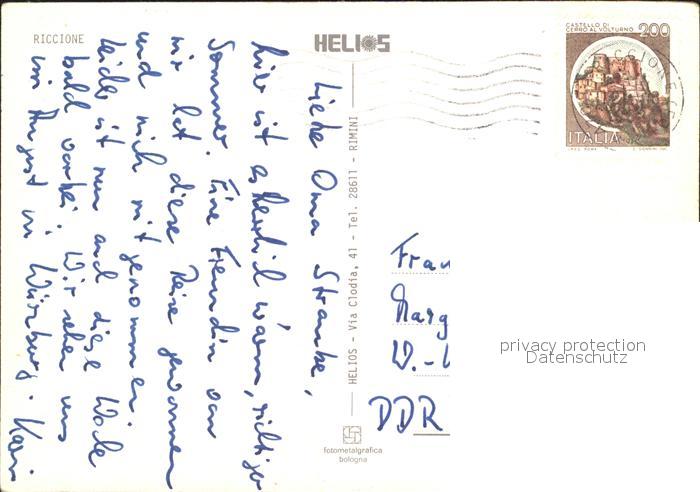 RICCIONE
HELIOS
Liebe Oma Straube,
hier ist es herrlich warm, richtiger
Sommer. Eine Freundin von
mir hat diese Reise gewonnen
und mich mitgenommen.
Leider ist nun auch diese Woche
bald vorbei. Wir sehen uns
im August in Würzburg. Karin
HELIOS - Via Clodia, 41 - Tel. 28611 - RIMINI
fotometalgrafica
bologna
CASTELLO DI
CERRO AL VOLTURNO 200
ITALIA
RICCIONE
Frau
Marg
W.-
DDR
privacy protection
Datenschutz